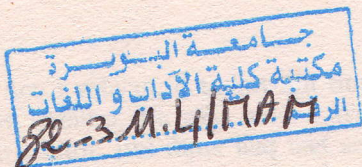 جامعة البويرة
مكتبة كلية الآداب و اللغات
الرقم